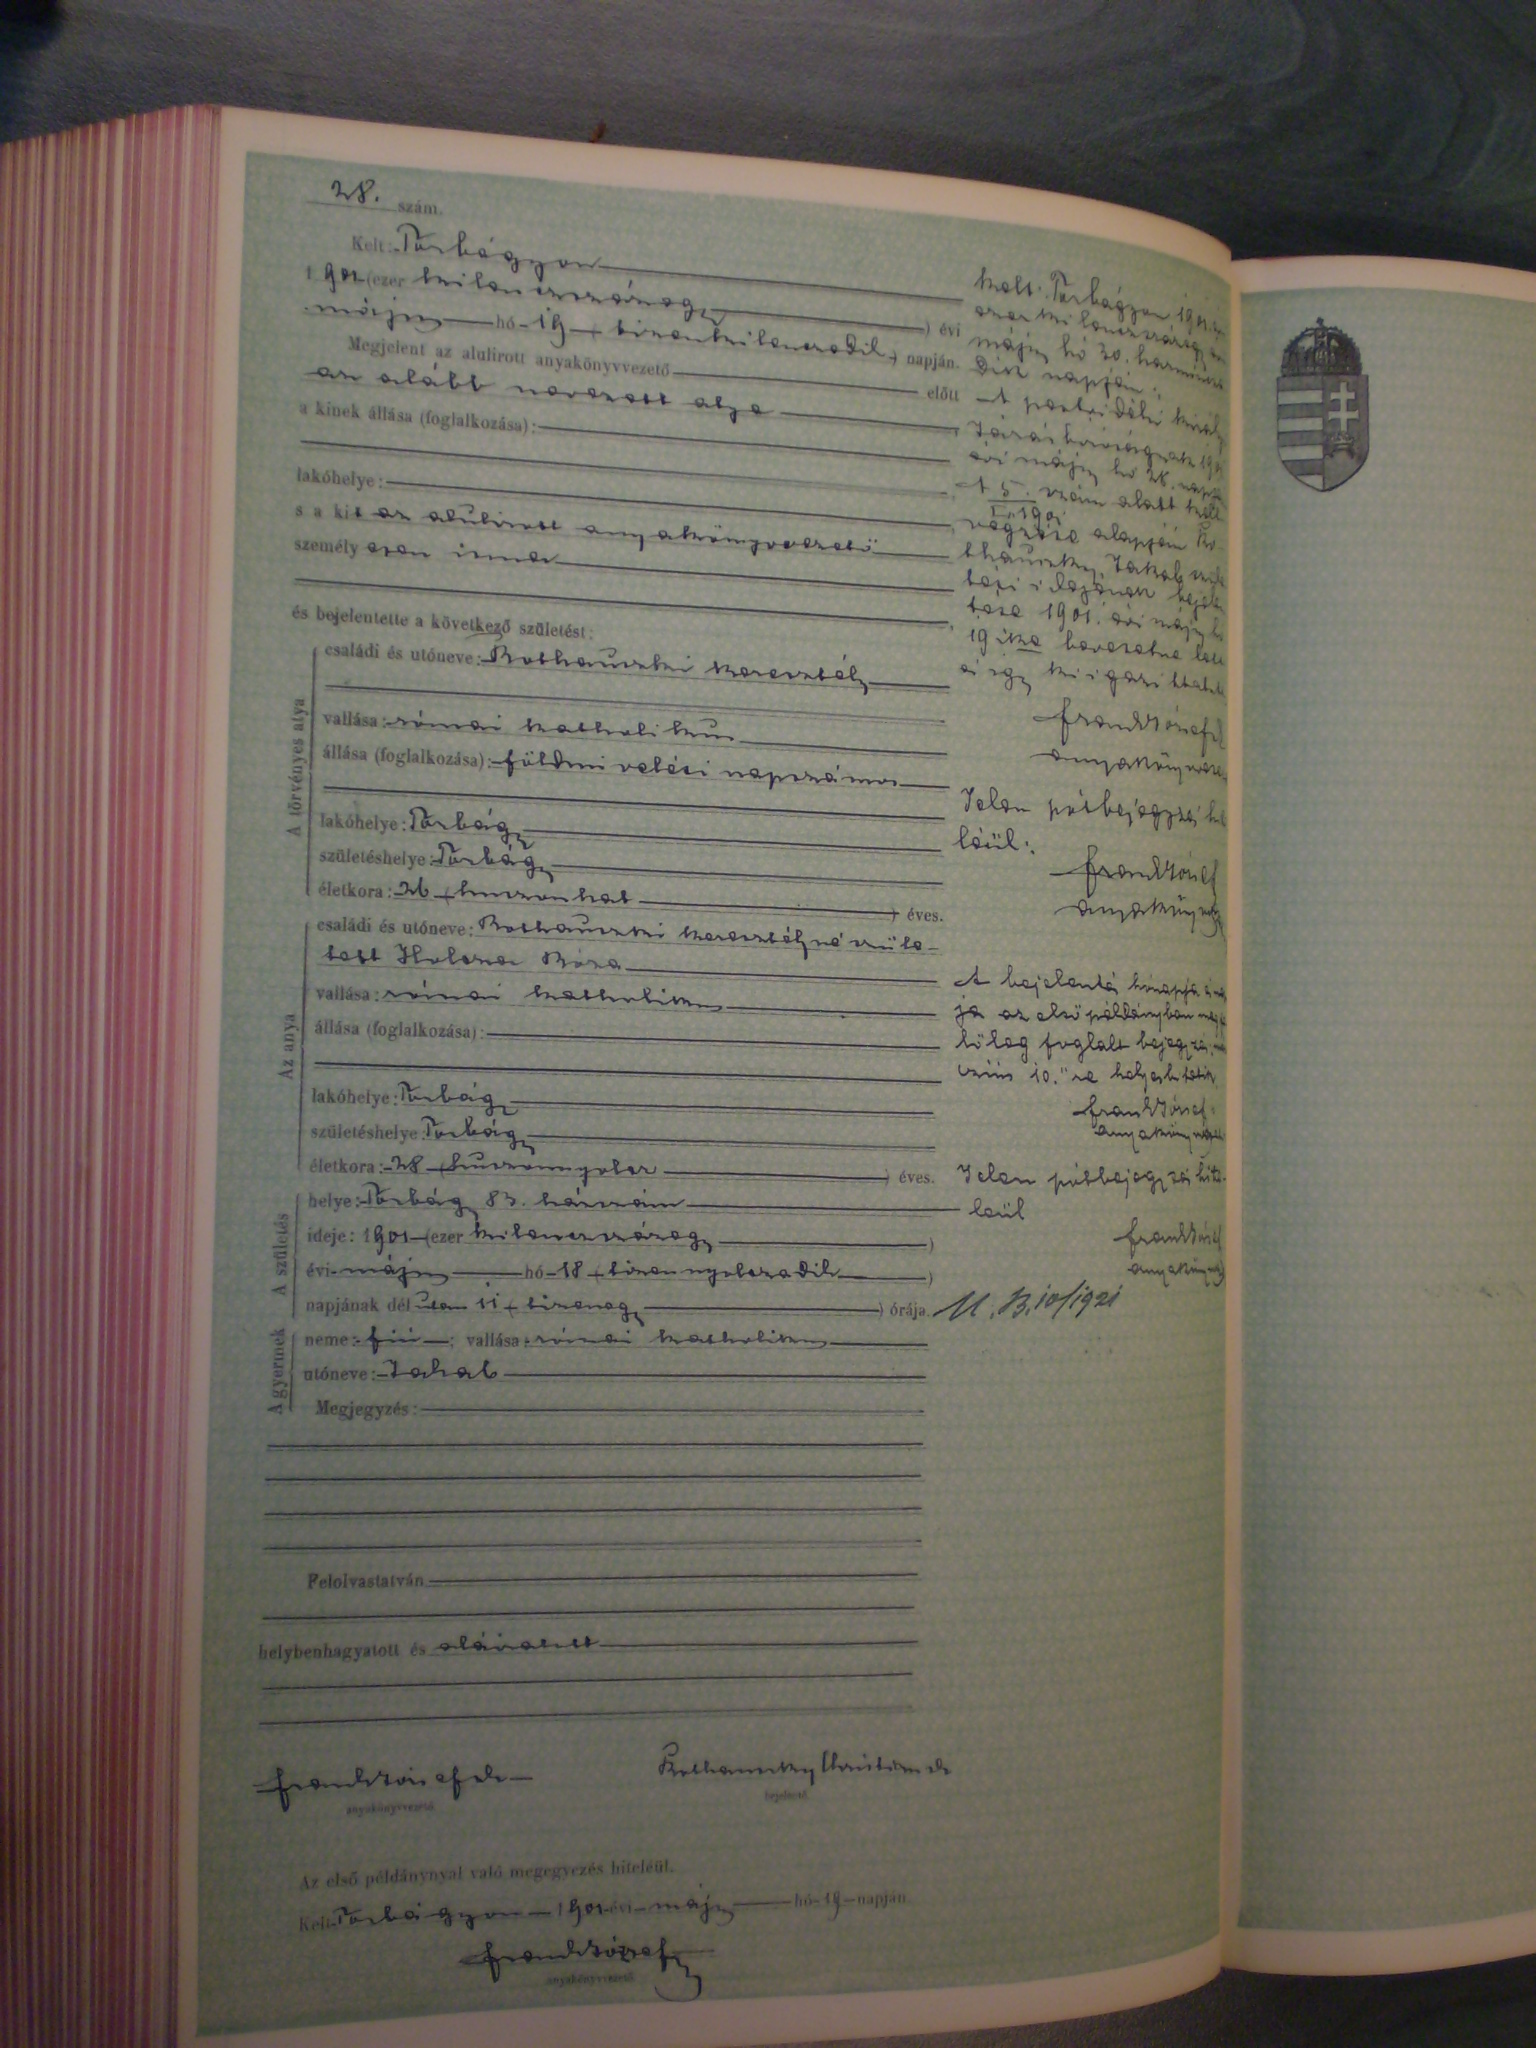 28. szám.
Kelt: Torbágyon
1901 (ezer kilenczszázegy) évi
május hó 19 (tizenkilenczedik) napján.
Megjelent az alulirott anyakönyvvezető előtt
az alább nevezett atya
a kinek állása (foglalkozása):
lakóhelye:
s a kit az alulirott anyakönyvvezető
személyesen ismer
és bejelentette a következő születést:
A törvényes atya
családi és utóneve: Rothauszki Keresztély
vallása: római katholikus
állása (foglalkozása): földmivelési napszámos
lakóhelye: Torbágy
születéshelye: Torbágy
életkora: 26 (huszonhat) éves.
Az anya
családi és utóneve: Rothauszki Keresztélyné szüle-
tett Holczer Róza
vallása: római katholikus
állása (foglalkozása):
lakóhelye: Torbágy
születéshelye: Torbágy
életkora: 28 (huszonnyolcz) éves.
A születés
helye: Torbágy 83. házszám
ideje: 1901 (ezer kilenczszázegy)
évi május hó 18 (tizennyolczadik)
napjának délután 11 (tizenegy) órája.
A gyermek
neme: fiú; vallása: római katholikus
utóneve: Jakab
Megjegyzés:
Felolvastatván
helybenhagyatott és aláiratott
Frank József
anyakönyvvezető
bejelentő
Az első példánynyal való megegyezés hiteléül.
Kelt Torbágyon 1901 évi május hó 19 napján.
Frank József
anyakönyvvezető
Kelt: Torbágyon 1901.
ezer kilenczszázegy évi
május hó 30. harmincz
dik napján:
járásbíróságnak 1901
évi május hó 28. napján
A 5. szám alatt kelt
végzése alapján Ro-
thauszky Jakab szüle
tési idejének bejelen
tése 1901. évi május hó
19 ike bevezetve lett
és így kiigazittatik
Frank József
anyakönyvvez.
Jelen pótbejegyzés hite
léül:
Frank József
A bejelentés hónapja és nap
ja az első példányban
lőleg foglalt bejegyzés
szám 10."re helyesbittetik
Frank József
Jelen pótbejegyzés hite-
léül
Frank József
M. B. 10/1921